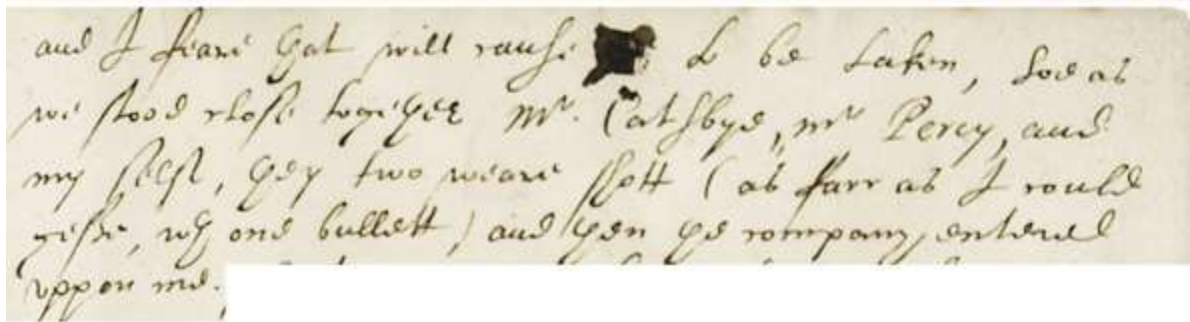 and I feare yat will cause to be taken, soe as
we stood close togeyer Mr. Catsbye, mr Percy, and
my self, yey two weare shott (as farr as I could
gesse, wth one bullett) and yen ye company entered
uppon me.